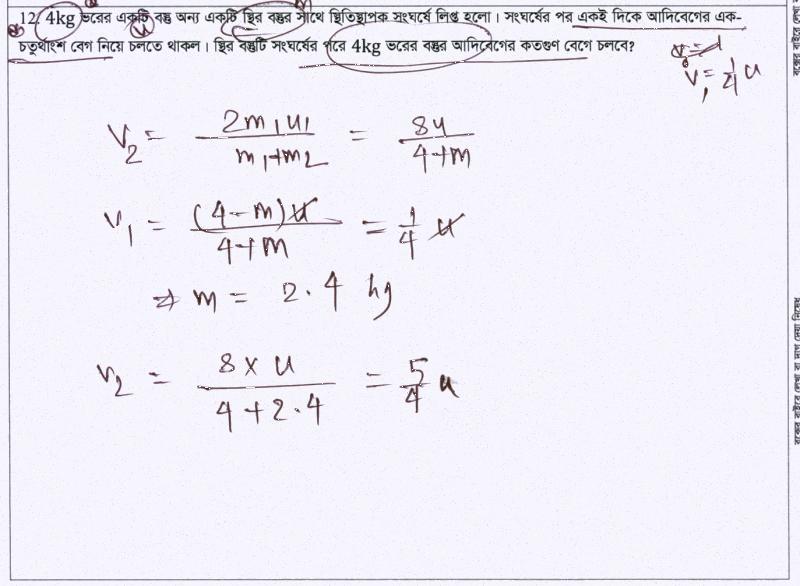 12. 4kg ভরের একটি বস্তু অন্য একটি স্থির বস্তুর সাথে স্থিতিস্থাপক সংঘর্ষে লিপ্ত হলো। সংঘর্ষের পর একই দিকে আদিবেগের এক-
চতুর্থাংশ বেগ নিয়ে চলতে থাকল। স্থির বস্তুটি সংঘর্ষের পরে 4kg ভরের বস্তুর আদিবেগের কতগুণ বেগে চলবে?
v₁ = 1/4 u
v₂ = 2m₁u₁/(m₁+m₂) = 8u/(4+m)
v₁ = (4-m)u/(4+m) = 1/4 u
⇒ m = 2.4 kg
v₂ = (8×u)/(4+2.4) = 5/4 u